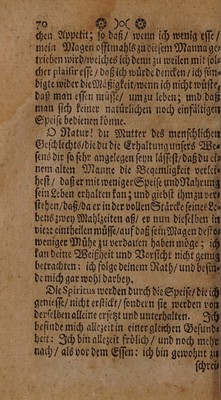 70
chen Appetit; so daß/ wenn ich wenig esse/
mein Magen offtmahls zu diesem Manna ge-
trieben wird/ welches ich denn zu weilen mit sol-
cher plaisir esse/ daß ich würde dencken/ ich sün-
digte wider die Mäßigkeit/ wenn ich nicht wüste/
daß man essen müsse/ um zu leben; und daß
man sich keiner natürlichen noch einfältigen
Speise bedienen könne.
O Natur! du Mutter des menschlichen
Geschlechts/ die du die Erhaltung unsers We-
sens dir so sehr angelegen seyn lässest/ daß du ei-
nem alten Manne die Bequemligkeit verlei-
hest/ daß er mit weniger Speise und Nahrung
sein Leben erhalten kan; und giebst ihm zu ver-
stehen/ daß/ da er in der vollen Stärcke seines Le-
bens zwey Mahlzeiten aß/ er nun dieselben in
viere eintheilen müsse/ auf daß sein Magen desto
weniger Mühe zu verdauen haben möge; ich
kan deine Weißheit und Vorsicht nicht genug
betrachten: ich folge deinem Rath/ und befin-
de mich gar wohl darbey.
Die Spiritus werden durch die Speise/ die ich
geniesse/ nicht erstickt/ sondern sie werden von
derselben alleine ersetzt und unterhalten. Ich
befinde mich allezeit in einer gleichen Gesund-
heit: Ich bin allezeit frölich/ und noch mehr
nach/ als vor dem Essen: ich bin gewohnt zu
schrei-